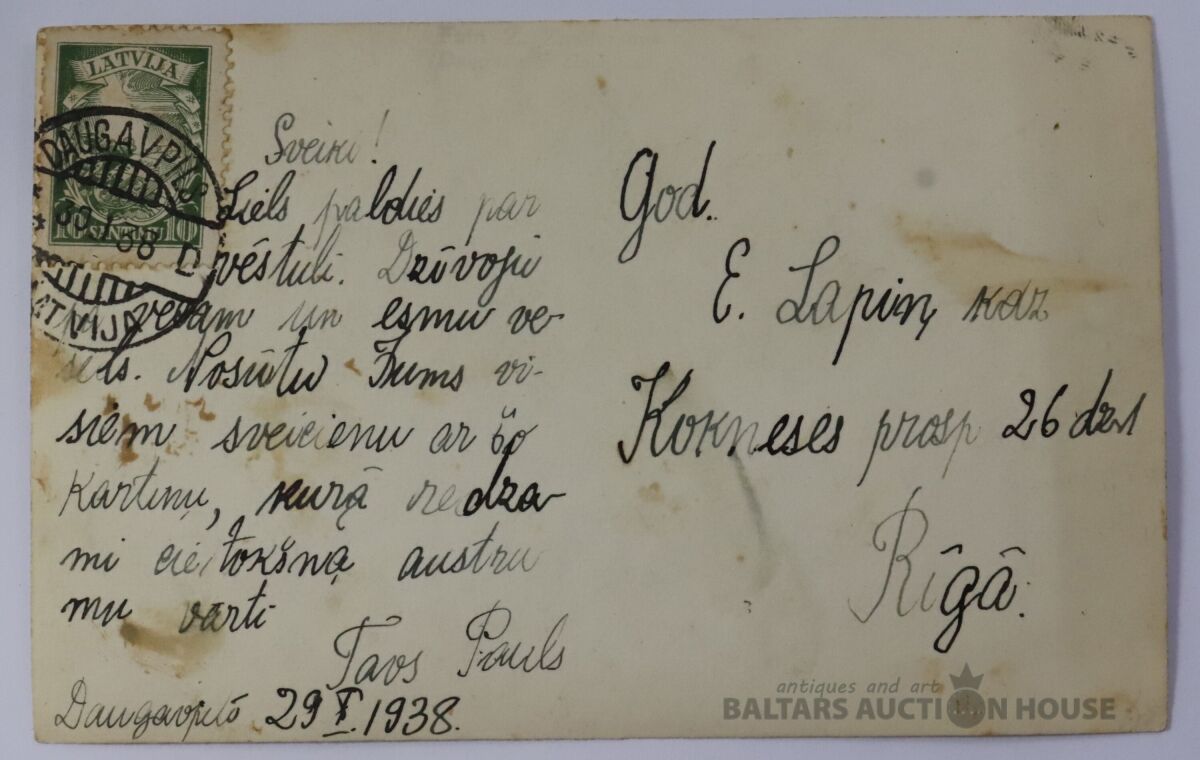 LATVIJA
DAUGAVPILS
30 I 38
D
LATVIJA
10 SANTIMU 10
Sveiki!
Liels paldies par
vēstuli. Dzīvoju
vecam un esmu ve-
sels. Nosūtu Jums vi-
siem sveicienu ar šo
Kartiņu, kurā redza-
mi cietokšņa austru
mu vārti
Tavs Pauls
Daugavpilō 29 I. 1938.
God.
E. Lapiņ, kdz
Kokneses prosp 26 dz.1
Rīgā.
antiques and art
BALTARS AUCTION HOUSE